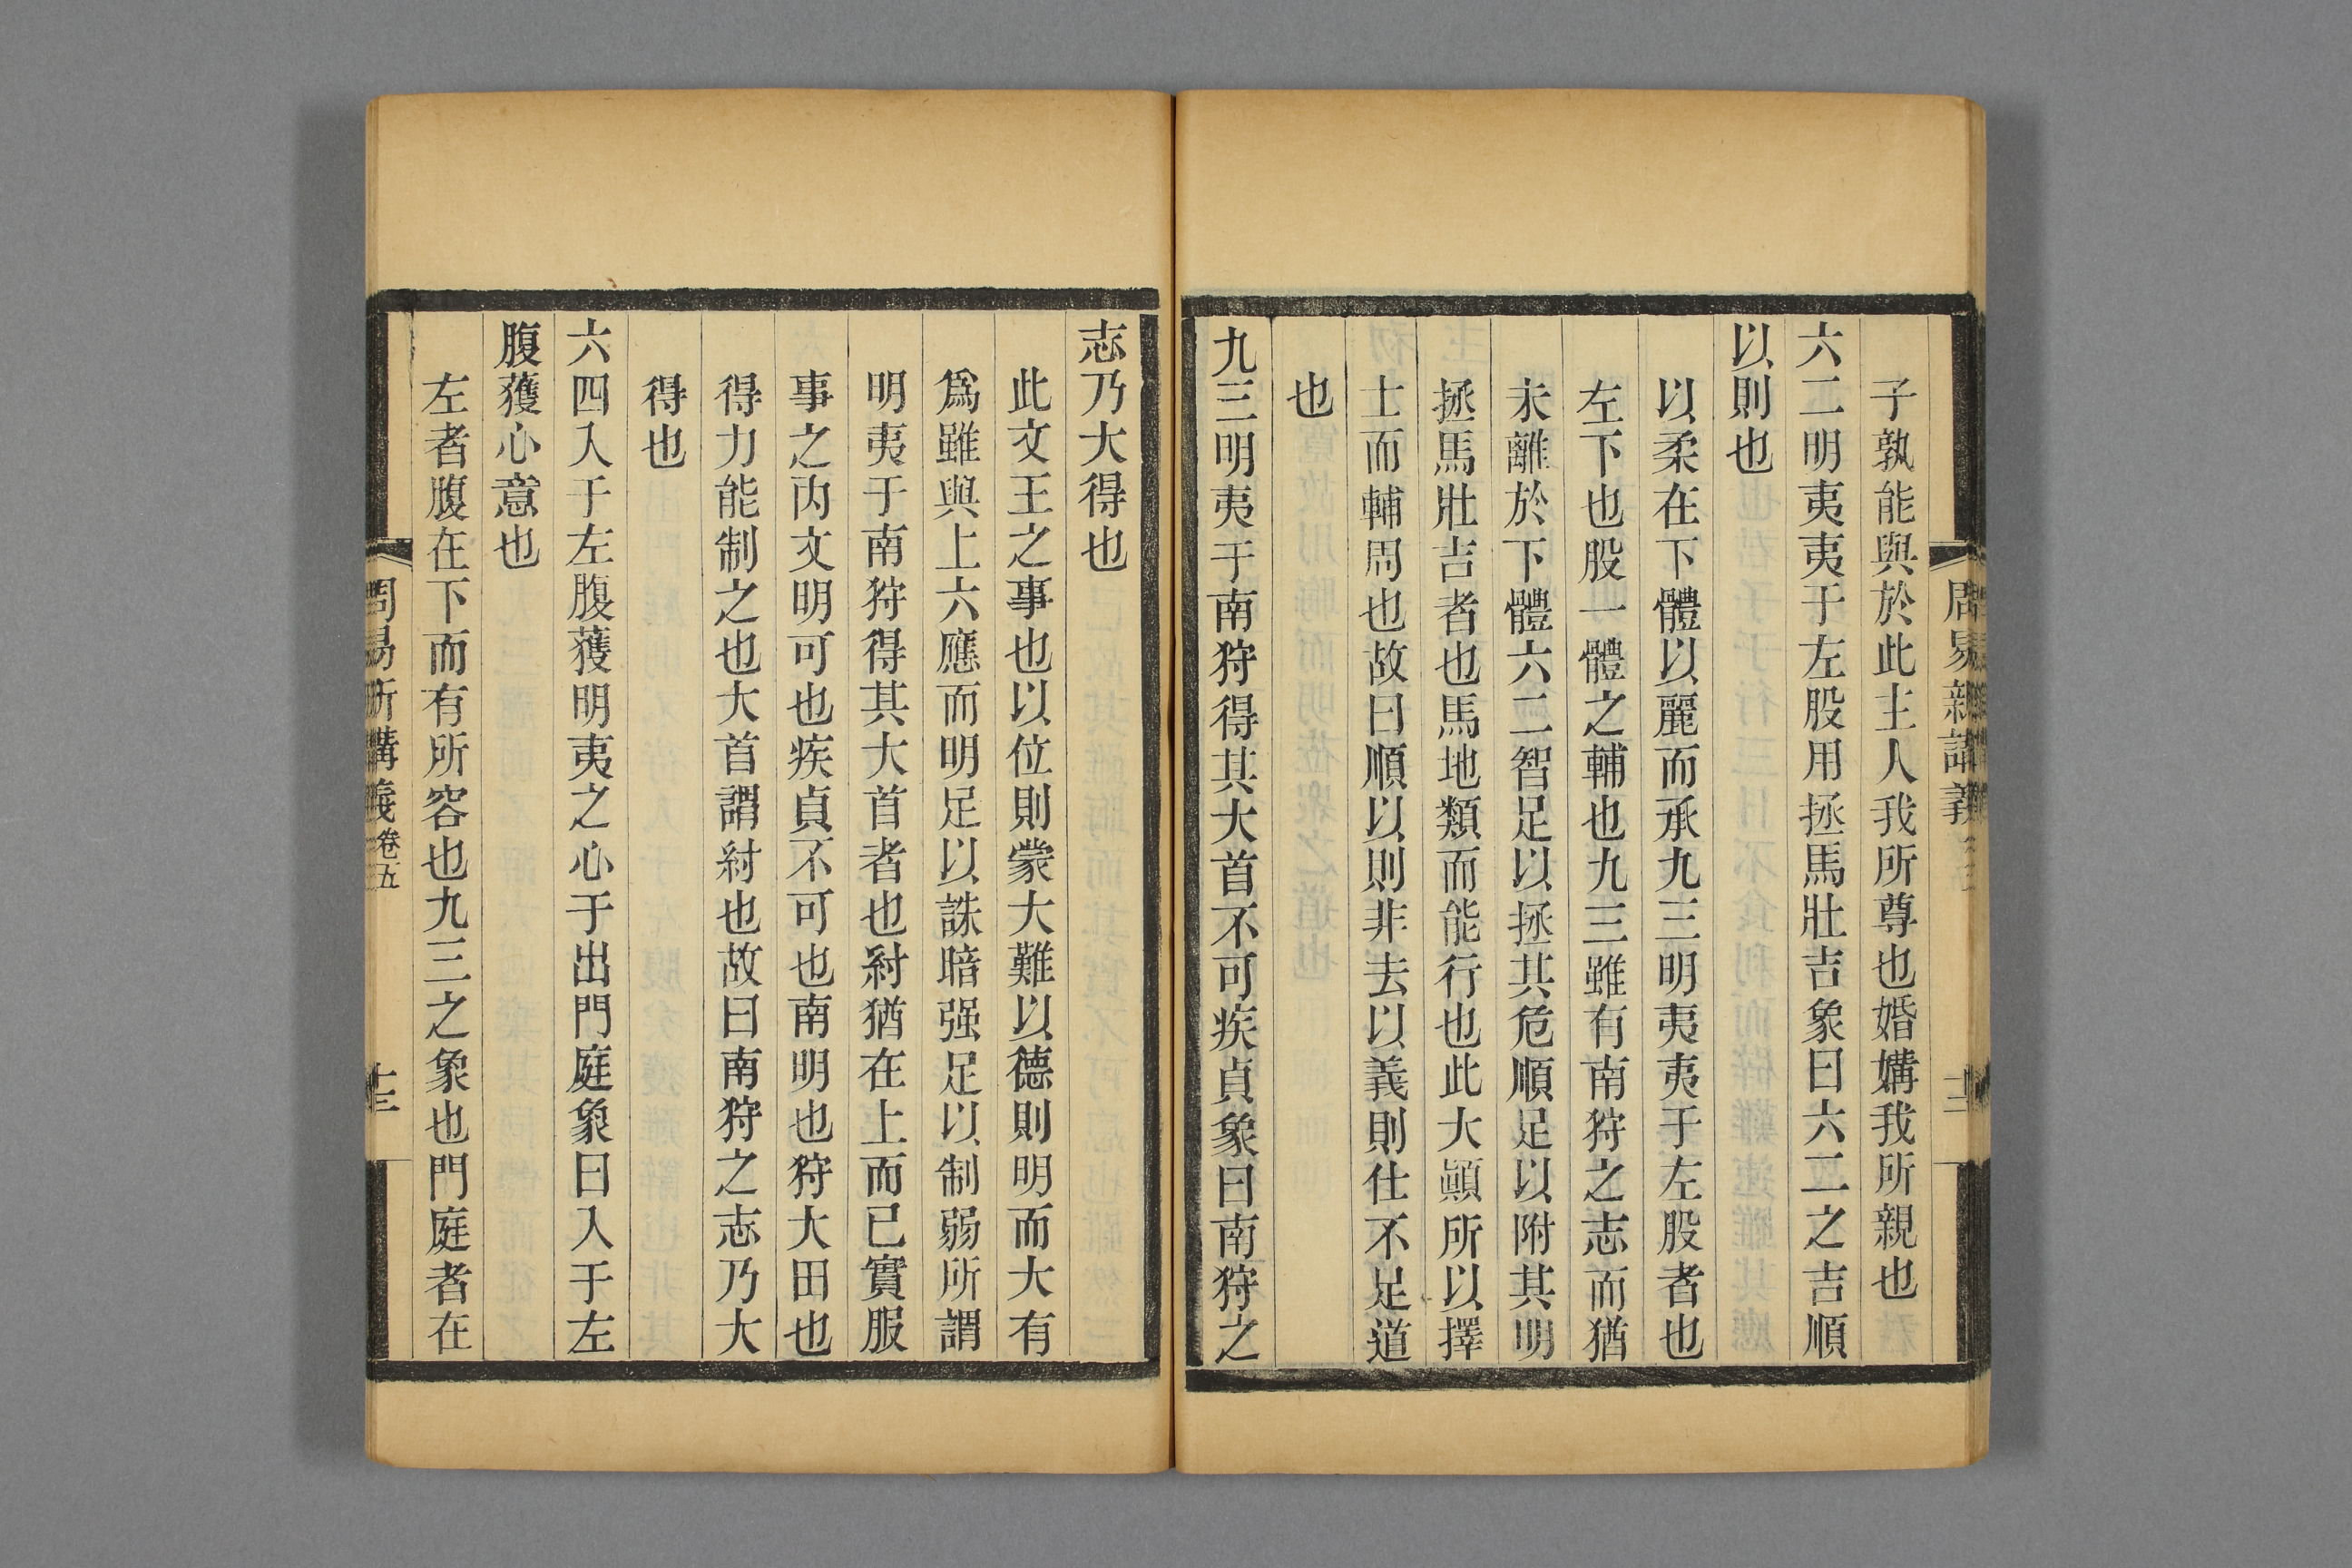 子孰能與於此主人我所尊也婚媾我所親也
六二明夷夷于左股用拯馬壯吉象曰六二之吉順
以則也
以柔在下體以麗而承九三明夷夷于左股者也
左下也股一體之輔也九三雖有南狩之志而猶
未離於下體六二智足以拯其危順足以附其明
拯馬壯吉者也馬地類而能行也此大顚所以擇
士而輔周也故曰順以則非去以義則仕不足道
也
九三明夷于南狩得其大首不可疾貞象曰南狩之
周易新講義
十二
志乃大得也
此文王之事也以位則蒙大難以德則明而大有
爲雖與上六應而明足以誅暗强足以制弱所謂
明夷于南狩得其大首者也紂猶在上而已實服
事之内文明可也疾貞不可也南明也狩大田也
得力能制之也大首謂紂也故曰南狩之志乃大
得也
六四入于左腹獲明夷之心于出門庭象曰入于左
腹獲心意也
左者腹在下而有所容也九三之象也門庭者在
周易新講義卷五
十三